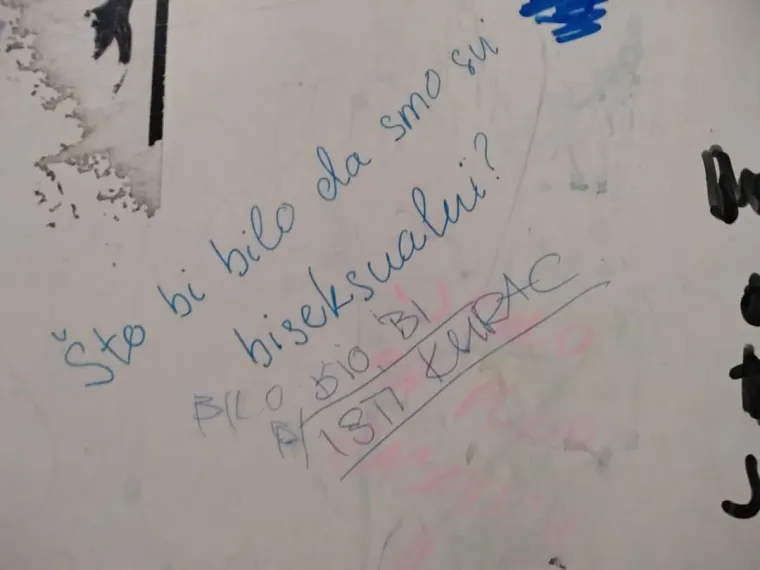 Što bi bilo da smo svi
biseksualni?
BILO BIO BI
BI ISTI KURAC